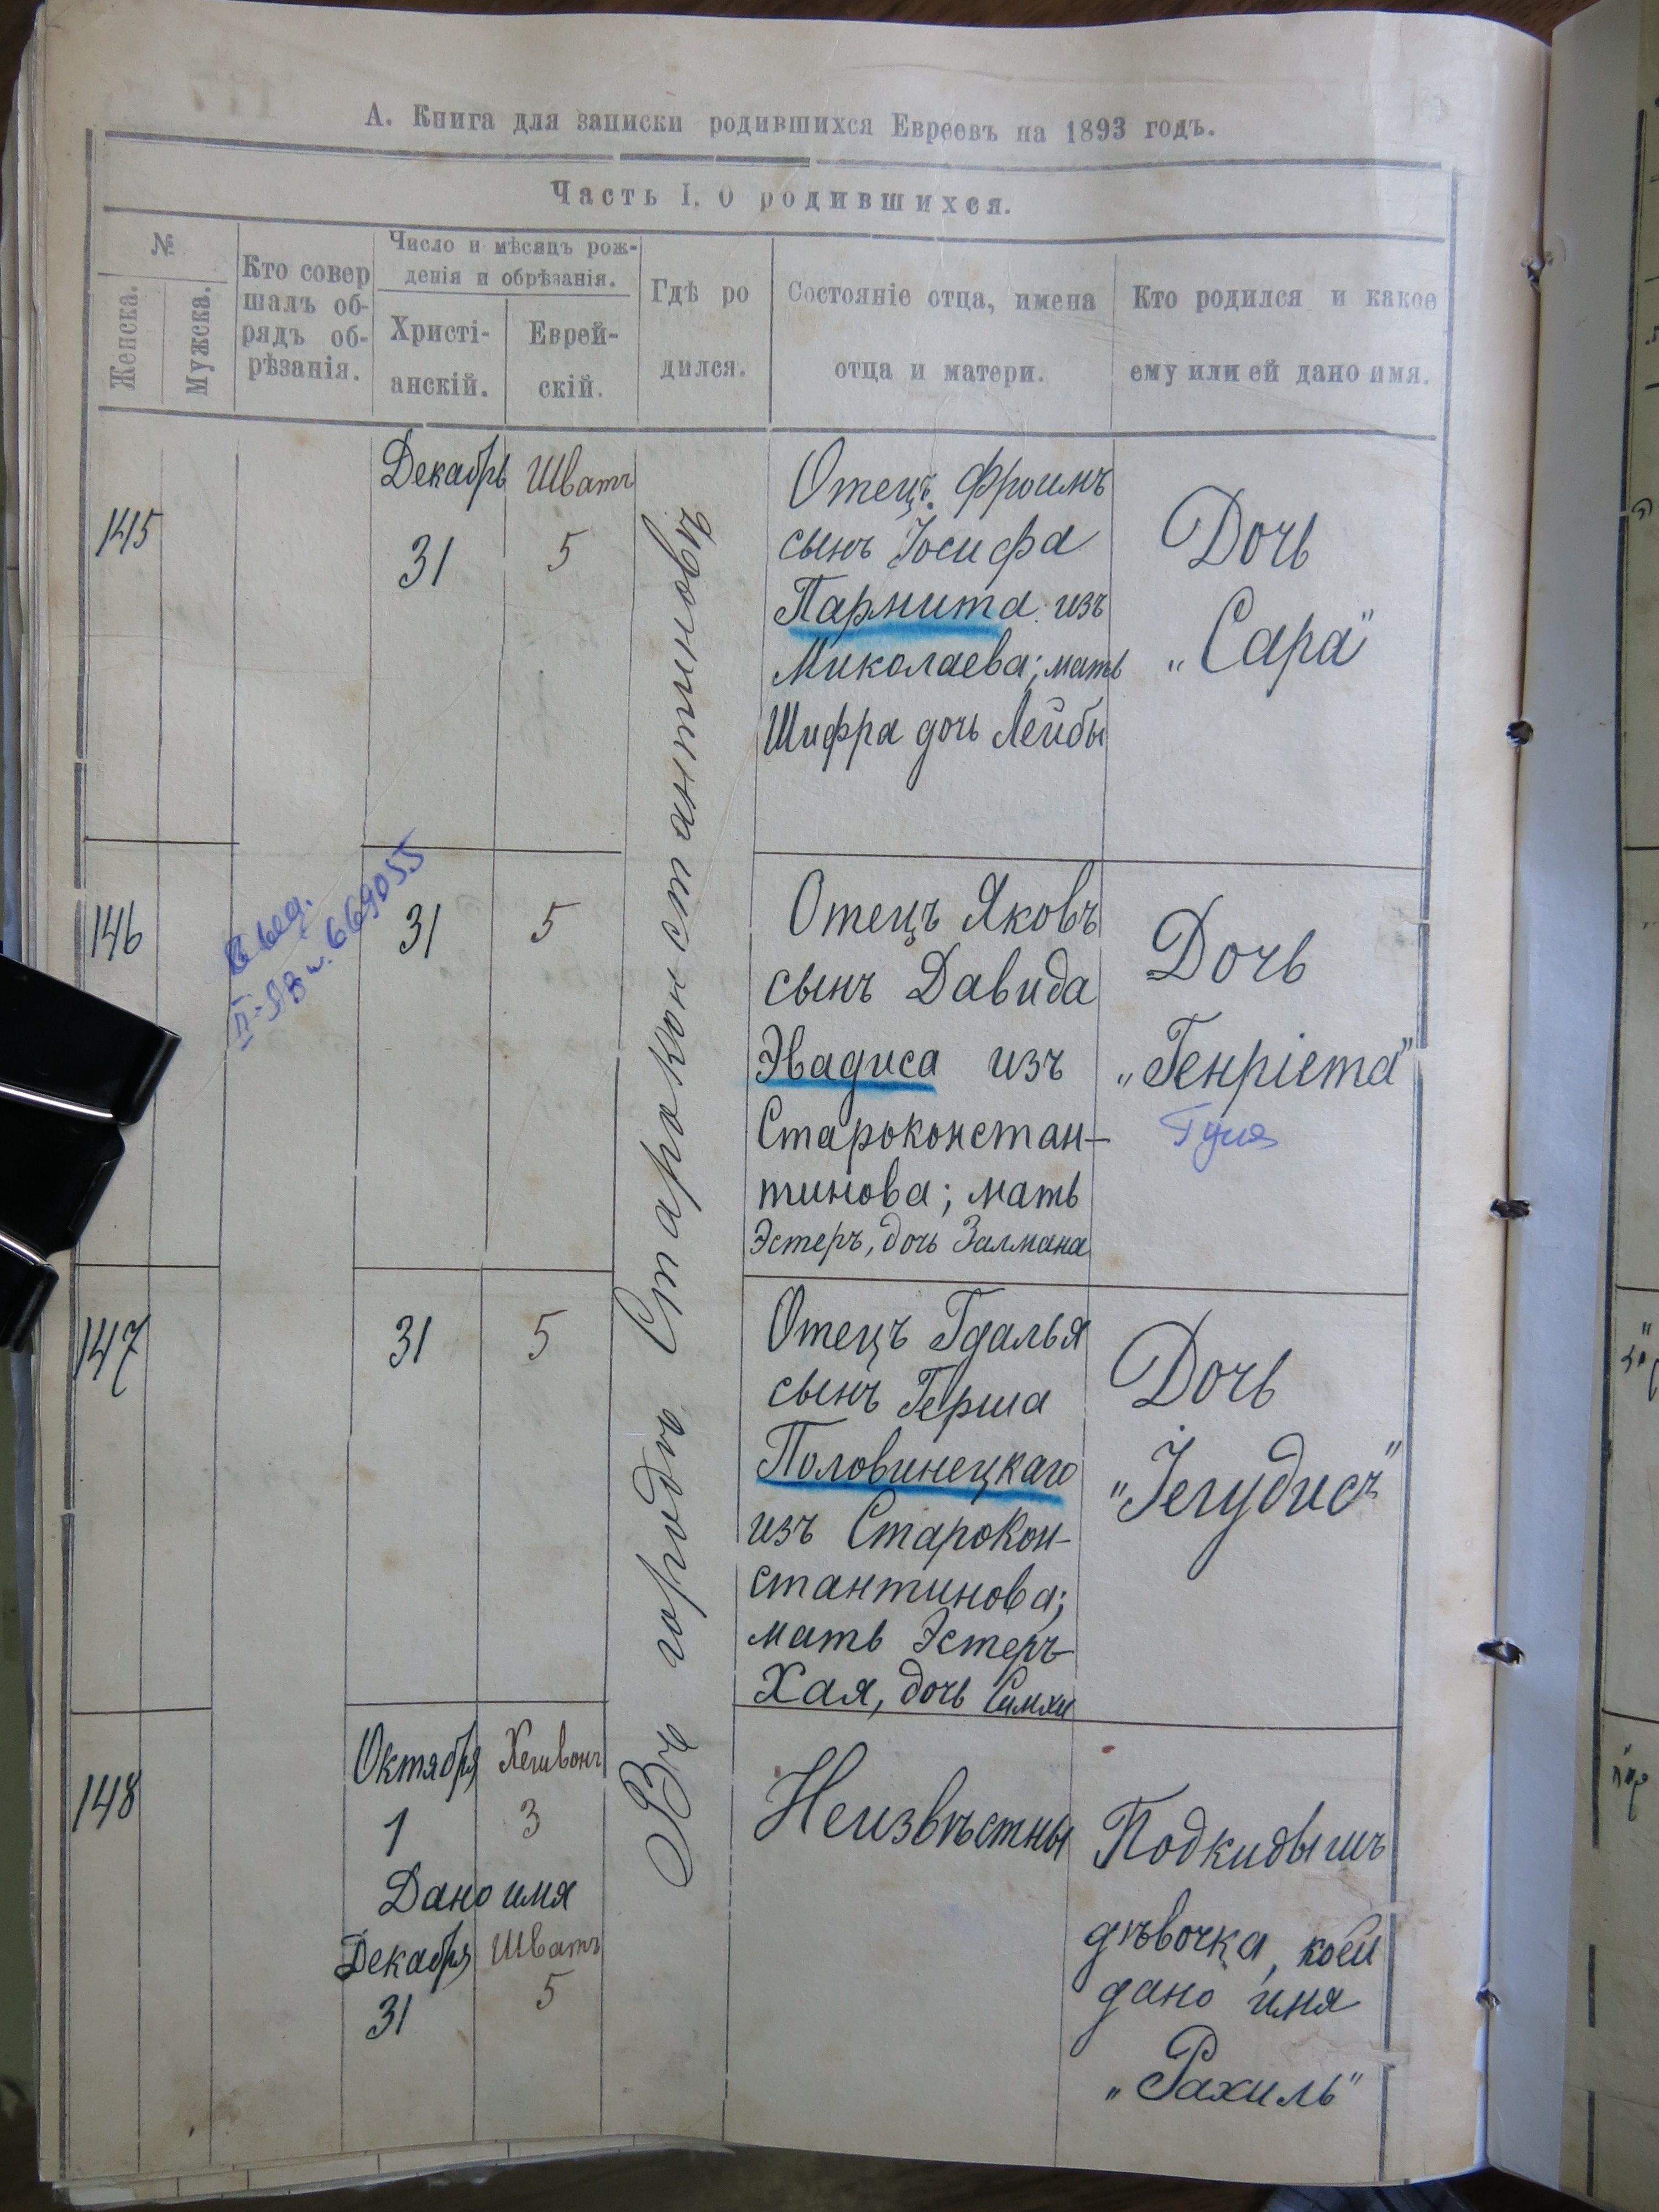 А. Книга для записки родившихся Евреевъ на 1893 годъ.
Часть I. О родившихся.
№
Женска.
Мужска.
Кто совер
шалъ об-
рядъ об-
рѣзанія.
Число и мѣсяцъ рож-
денія и обрѣзанія.
Христі-
анскій.
Еврей-
скій.
Гдѣ ро
дился.
Состояніе отца, имена
отца и матери.
Кто родился и какое
ему или ей дано имя.
Въ городѣ Староконстантиновѣ
145
Декабрь
31
Шватъ
5
Отецъ Фроимъ
сынъ Іосифа
Пармита изъ
Миколаева; мать
Шифра дочь Лейбы
Дочь
„Сара"
146
выд.
II-ЯВ № 669055
31
5
Отецъ Яковъ
сынъ Давида
Эвадиса изъ
Староконстан-
тинова; мать
Эстеръ, дочь Залмана
Дочь
„Генріета"
Гуня
147
31
5
Отецъ Гдалья
сынъ Герша
Половинецкаго
изъ Старокон-
стантинова;
мать Эстеръ-
Хая, дочь Симхи
Дочь
"Іегудисъ"
148
Октября
1
Хешвонъ
3
Дано имя
Декабря
31
Шватъ
5
Неизвѣстны
Подкидышъ
дѣвочка, коей
дано имя
„Рахиль"